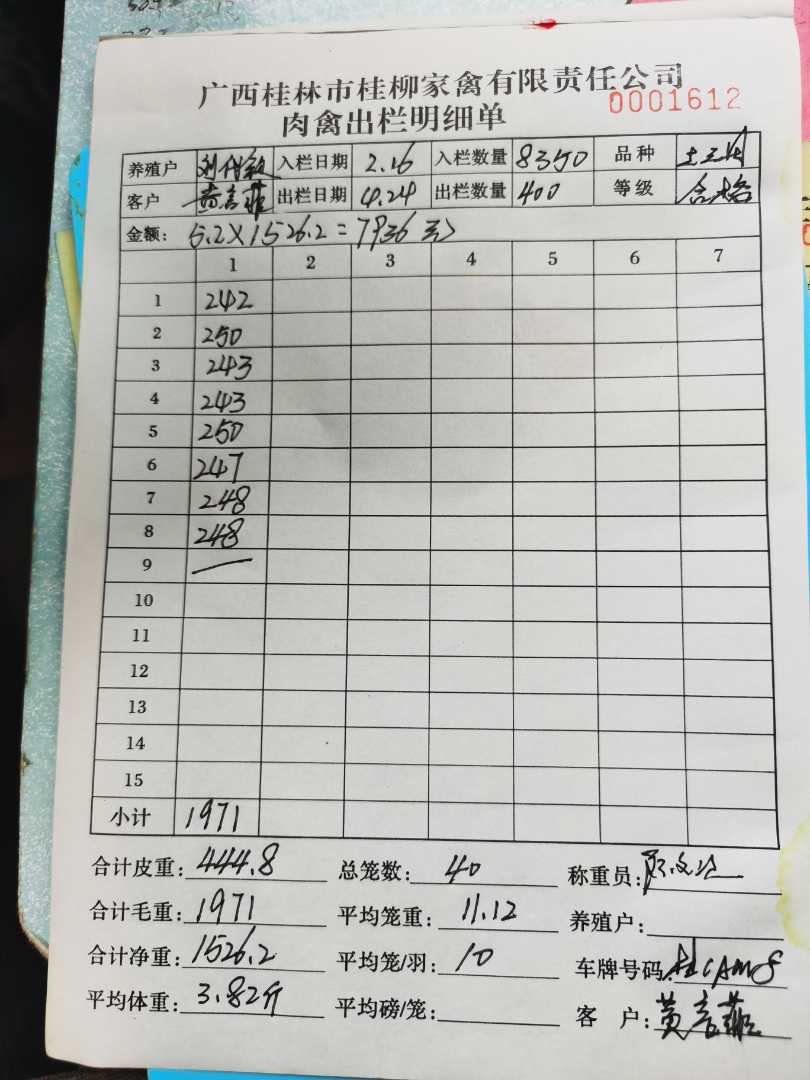 广西桂林市桂柳家禽有限责任公司
肉禽出栏明细单
0001612
养殖户 入栏日期 2.16 入栏数量 8350 品种
客户 黄 出栏日期 4.24 出栏数量 400 等级 合格
金额: 5.2×1526.2=7936元
1 2 3 4 5 6 7
1 242
2 250
3 243
4 243
5 250
6 247
7 248
8 248
9 —
10
11
12
13
14
15
小计 1971
合计皮重: 444.8 总笼数: 40 称重员:
合计毛重: 1971 平均笼重: 11.12 养殖户:
合计净重: 1526.2 平均笼/羽: 10 车牌号码:
平均体重: 3.82斤 平均磅/笼: 客户: 黄